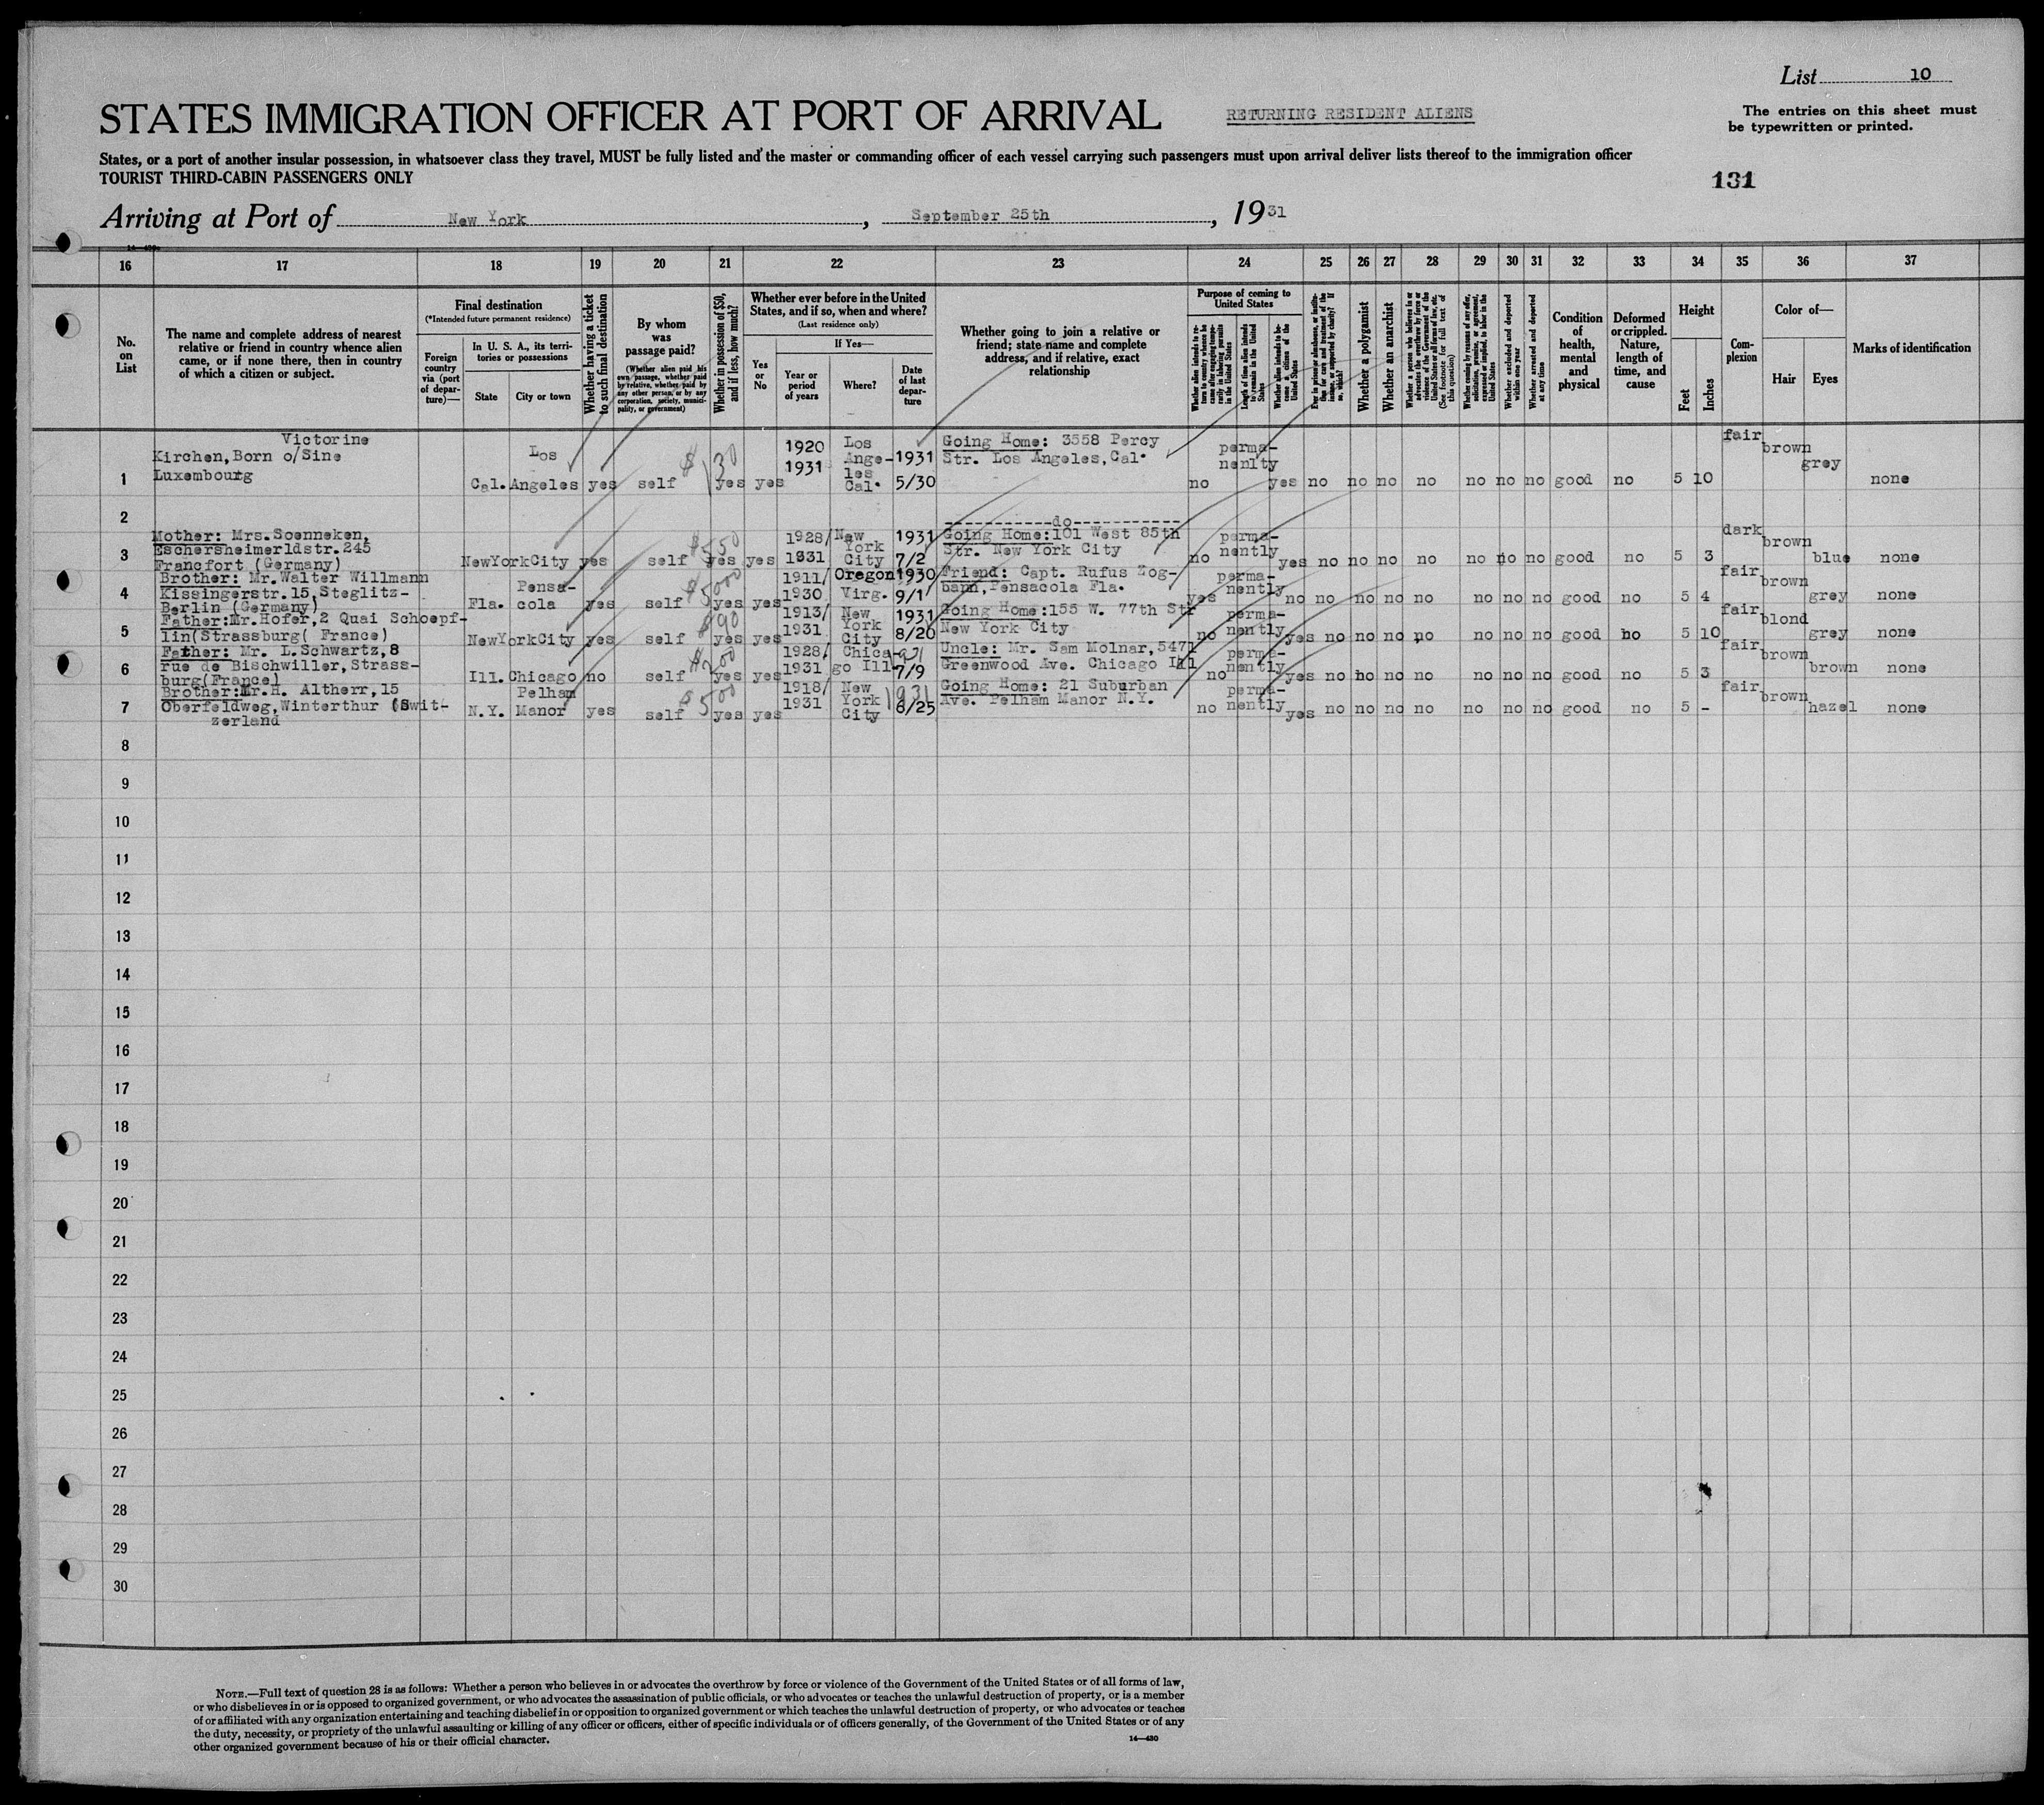 List 10
STATES IMMIGRATION OFFICER AT PORT OF ARRIVAL
RETURNING RESIDENT ALIENS
The entries on this sheet must
be typewritten or printed.
States, or a port of another insular possession, in whatsoever class they travel, MUST be fully listed and the master or commanding officer of each vessel carrying such passengers must upon arrival deliver lists thereof to the immigration officer
TOURIST THIRD-CABIN PASSENGERS ONLY
131
Arriving at Port of New York, September 25th, 1931
16 17 18 19 20 21 22 23 24 25 26 27 28 29 30 31 32 33 34 35 36 37
No.
on
List
The name and complete address of nearest
relative or friend in country whence alien
came, or if none there, then in country
of which a citizen or subject.
Final destination
(*Intended future permanent residence)
Foreign
country
via (port
of depar-
ture)—
In U. S. A., its terri-
tories or possessions
State
City or town
Whether having a ticket
to such final destination
By whom
was
passage paid?
(Whether alien paid his
own passage, whether paid
by relative, whether paid by
any other person, or by any
corporation, society, munici-
pality, or government)
Whether in possession of $50,
and if less, how much?
Whether ever before in the United
States, and if so, when and where?
(Last residence only)
Yes
or
No
If Yes—
Year or
period
of years
Where?
Date
of last
depar-
ture
Whether going to join a relative or
friend; state name and complete
address, and if relative, exact
relationship
Purpose of coming to
United States
Whether alien intends to re-
turn to country whence he
came after engaging tempo-
rarily in laboring pursuits
in the United States
Length of time alien intends
to remain in the United
States
Whether alien intends to be-
come a citizen of the
United States
Ever in prison or almshouse, or institu-
tion for care and treatment of the
insane, or supported by charity? If
so, which?
Whether a polygamist
Whether an anarchist
Whether a person who believes in or
advocates the overthrow by force or
violence of the Government of the
United States or all forms of law, etc.
(See footnote for full text of
this question)
Whether coming by reason of any offer,
solicitation, promise, or agreement,
expressed or implied, to labor in the
United States
Whether excluded and deported
within one year
Whether arrested and deported
at any time
Condition
of
health,
mental
and
physical
Deformed
or crippled.
Nature,
length of
time, and
cause
Height
Feet
Inches
Com-
plexion
Color of—
Hair
Eyes
Marks of identification
Victorine
Kirchen, Born o/Sine
Luxembourg
1 Cal. Los Angeles yes self $130 yes yes 1920 1931 Los Ange-les Cal. 1931 5/30
Going Home: 3558 Percy
Str. Los Angeles, Cal.
no perma-nenlty yes no no no no no no no good no 5 10 fair brown grey none
2 -----------do-----------
Mother: Mrs. Soenneken,
Eschersheimerldstr. 245
Francfort (Germany)
3 NewYorkCity yes self $550 yes yes 1928/ 1931 New York City 1931 7/2
Going Home: 101 West 85th
Str. New York City
no perma-nently yes no no no no no no no good no 5 3 dark brown blue none
Brother: Mr. Walter Willmann
Kissingerstr. 15, Steglitz-
Berlin (Germany)
4 Fla. Pensa-cola yes self $5000 yes yes 1911/ 1930 Oregon Virg. 1930 9/1
Friend: Capt. Rufus Zog-
bann, Pensacola Fla.
yes perma-nently no no no no no no no no good no 5 4 fair brown grey none
Father: Mr. Hofer, 2 Quai Schoepf-
lin(Strassburg( France)
5 NewYorkCity yes self $90 yes yes 1913/ 1931 New York City 1931 8/20
Going Home: 155 W. 77th Str
New York City
no perma-nently yes no no no no no no no good no 5 10 fair blond grey none
Father: Mr. L. Schwartz, 8
rue de Bischwiller, Strass-
burg(France)
6 Ill. Chicago no self $200 yes yes 1928/ 1931 Chica-go Ill 7/9
Uncle: Mr. Sam Molnar, 5471
Greenwood Ave. Chicago Ill
no perma-nently yes no no no no no no no good no 5 3 fair brown brown none
Brother: Mr. H. Altherr, 15
Oberfeldweg, Winterthur (Swit-
zerland
7 N.Y. Pelham Manor yes self $500 yes yes 1918/ 1931 New York City 1931 6/25
Going Home: 21 Suburban
Ave. Pelham Manor N.Y.
no perma-nently yes no no no no no no no good no 5 - fair brown hazel none
8
9
10
11
12
13
14
15
16
17
18
19
20
21
22
23
24
25
26
27
28
29
30
NOTE.—Full text of question 28 is as follows: Whether a person who believes in or advocates the overthrow by force or violence of the Government of the United States or of all forms of law,
or who disbelieves in or is opposed to organized government, or who advocates the assassination of public officials, or who advocates or teaches the unlawful destruction of property, or is a member
of or affiliated with any organization entertaining and teaching disbelief in or opposition to organized government or which teaches the unlawful destruction of property, or who advocates or teaches
the duty, necessity, or propriety of the unlawful assaulting or killing of any officer or officers, either of specific individuals or of officers generally, of the Government of the United States or of any
other organized government because of his or their official character.
14—430